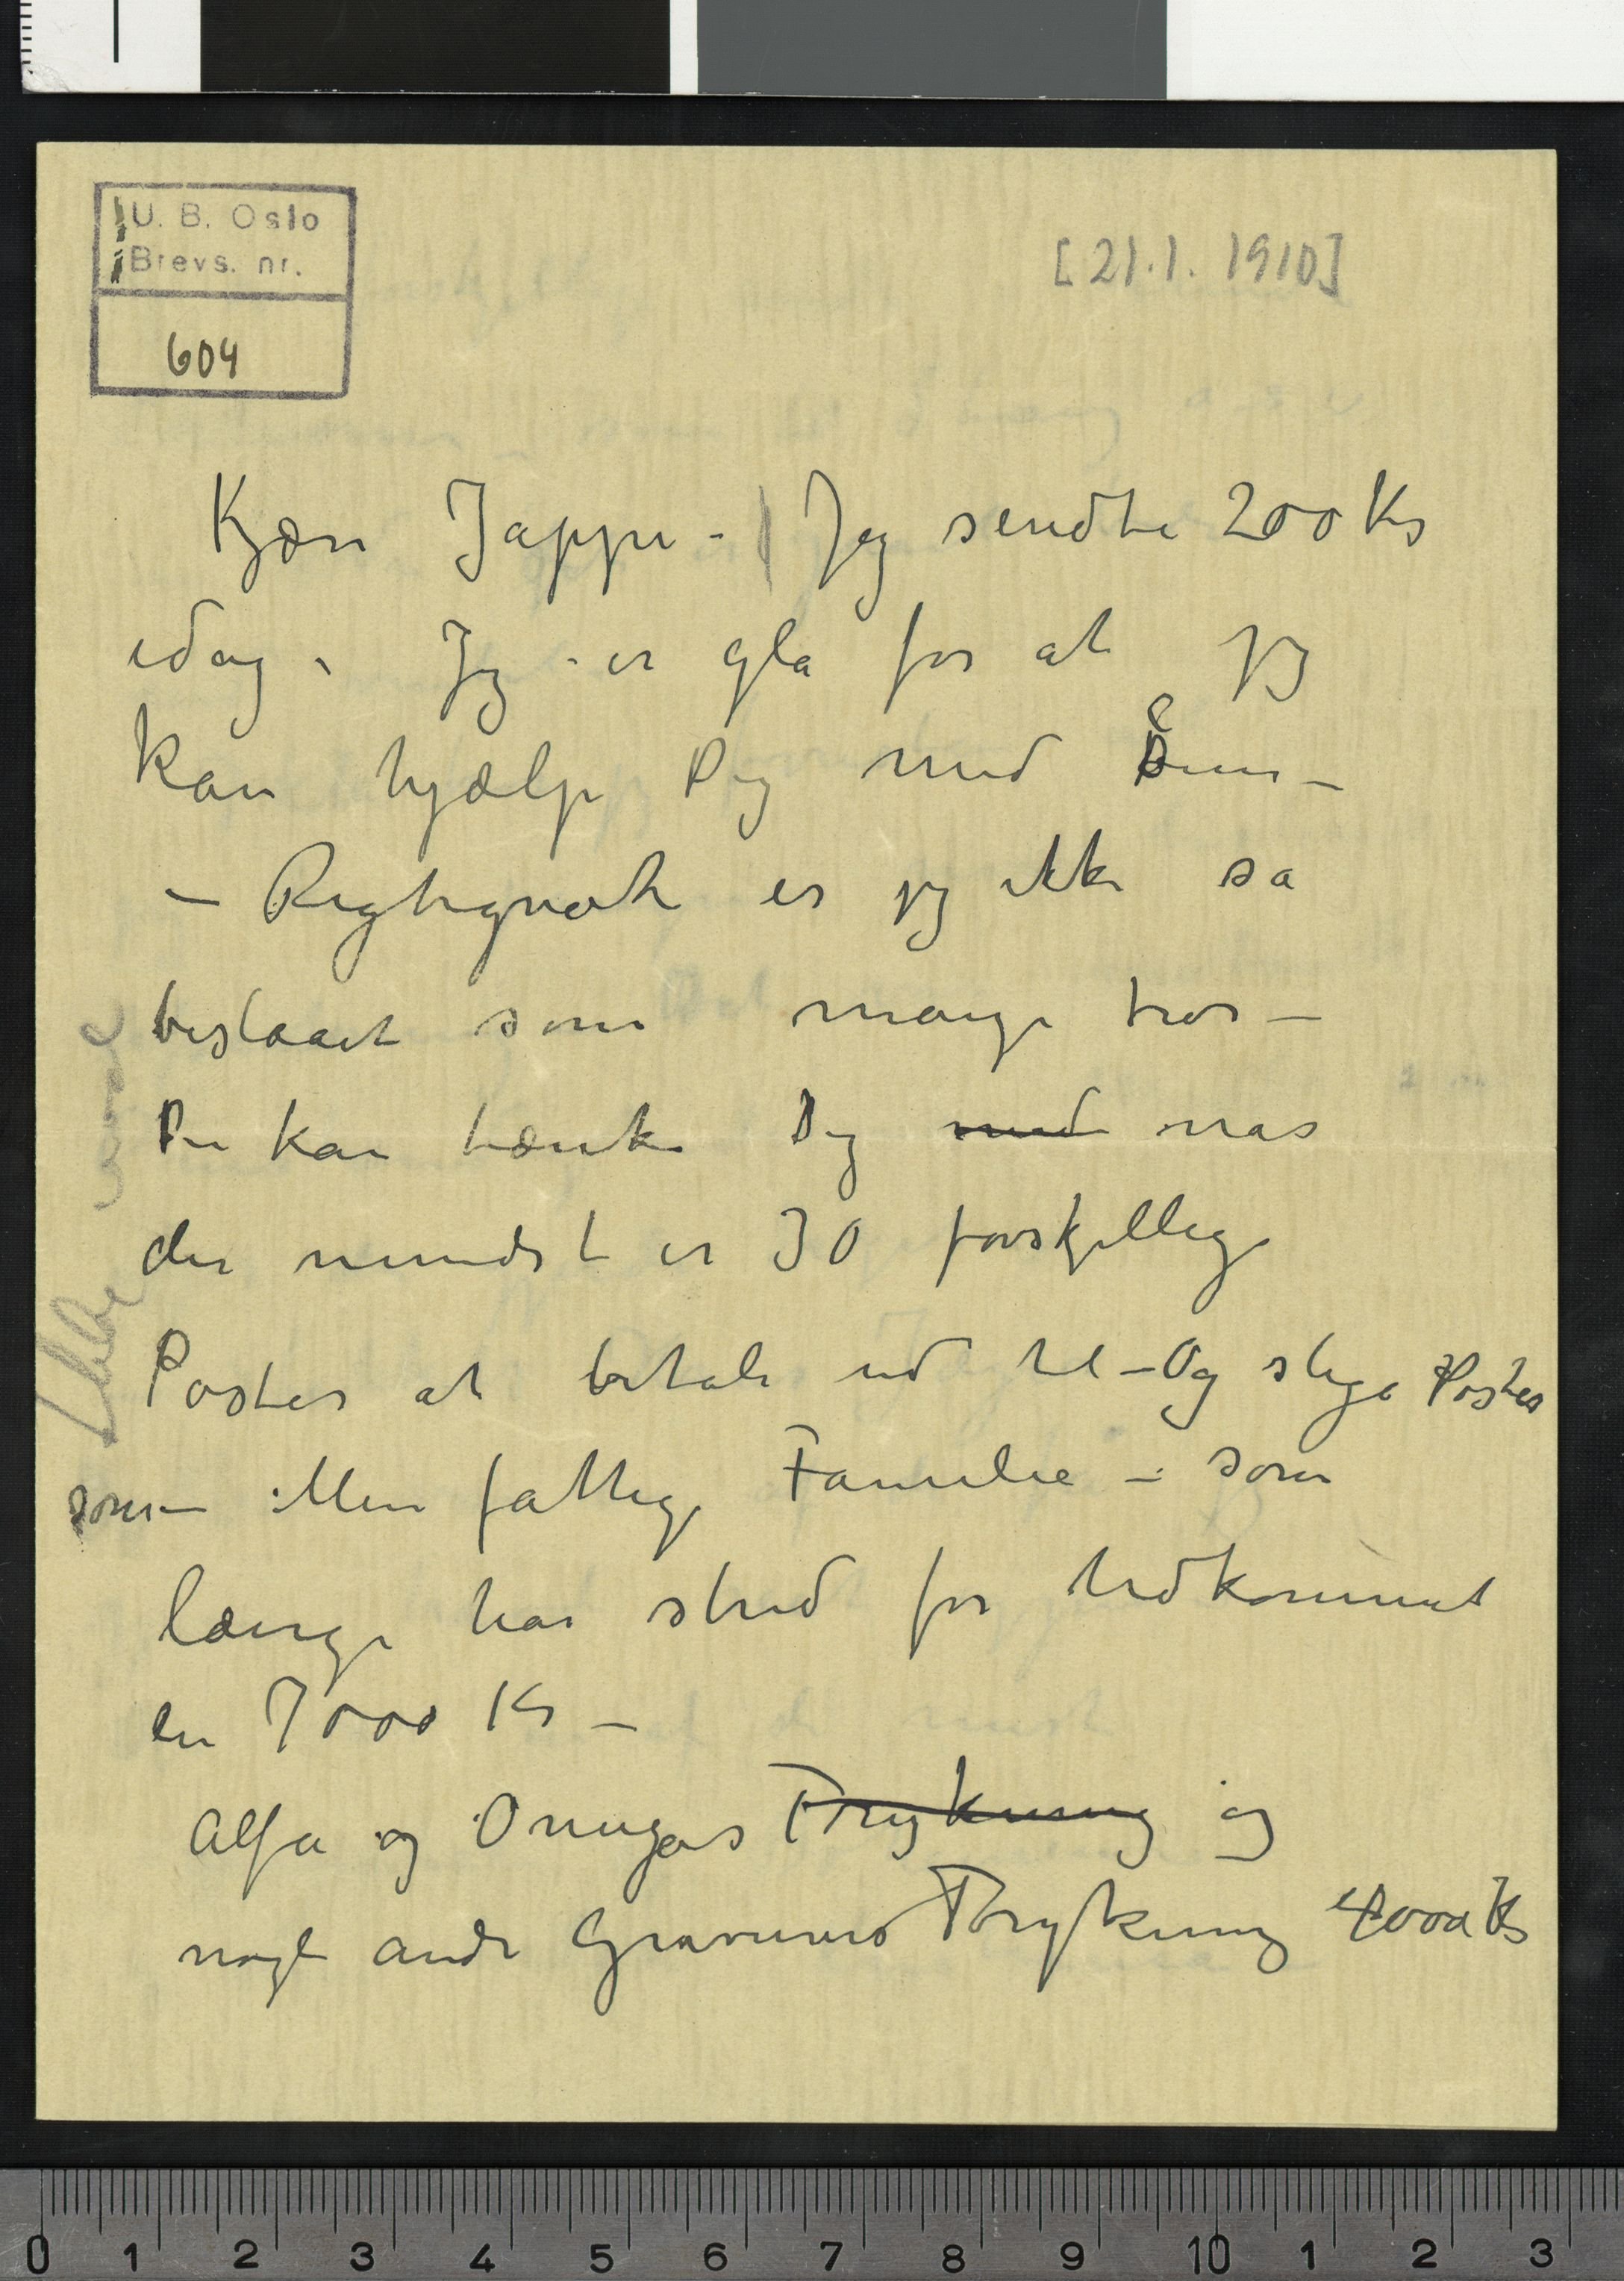 U. B. Oslo
Brevs. nr.
604
[21.1. 1910]
Kjære Jappe - | Jeg sendte 200 Kr
idag - Jeg er gla for at jeg
kan hjælpe Dig med
– Rigtignok er jeg ikke sa
beslaaet som mange tror –
Du kan tænke Dig med naar
der mindst er 30 forskjellige
Poster at betale ud til – Og slige Poster
som – Min fattige Familie – som
længe har strid for Udkommet
en 7000 Kr –
Alfa og Omegas Trykning og
nogle andre Gravures Trykning 4000 Kr